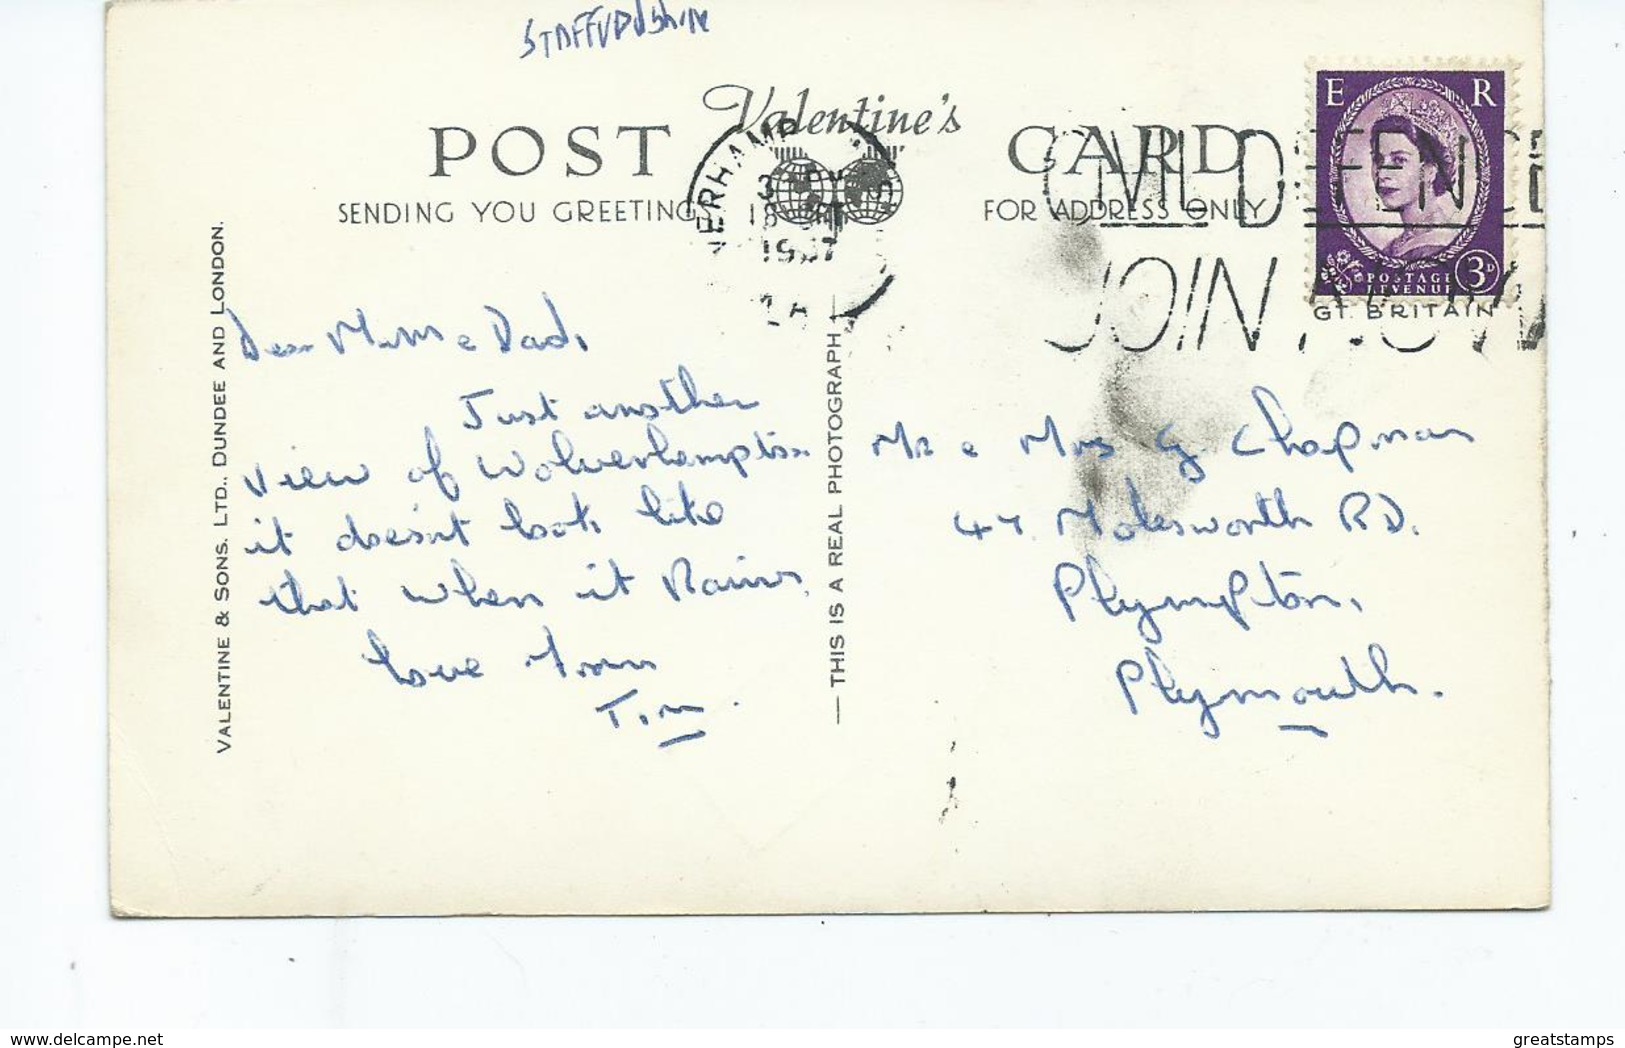 STAFFURDShire
Valentine's
POST CARD
SENDING YOU GREETING
FOR ADDRESS ONLY
VERHAMP
3 PM
18
1957
CIVIL DEFENCE
JOIN NOW
E R
POSTAGE
REVENUE
3D
GT. BRITAIN
VALENTINE & SONS. LTD., DUNDEE AND LONDON.
— THIS IS A REAL PHOTOGRAPH
Dear Mum & Dad,
Just another
view of Wolverhampton
it doesn't look like
that when it Rains,
love from
Tim.
Mr & Mrs G Chapman
47. Molesworth RD.
Plympton,
Plymouth.
greatstamps